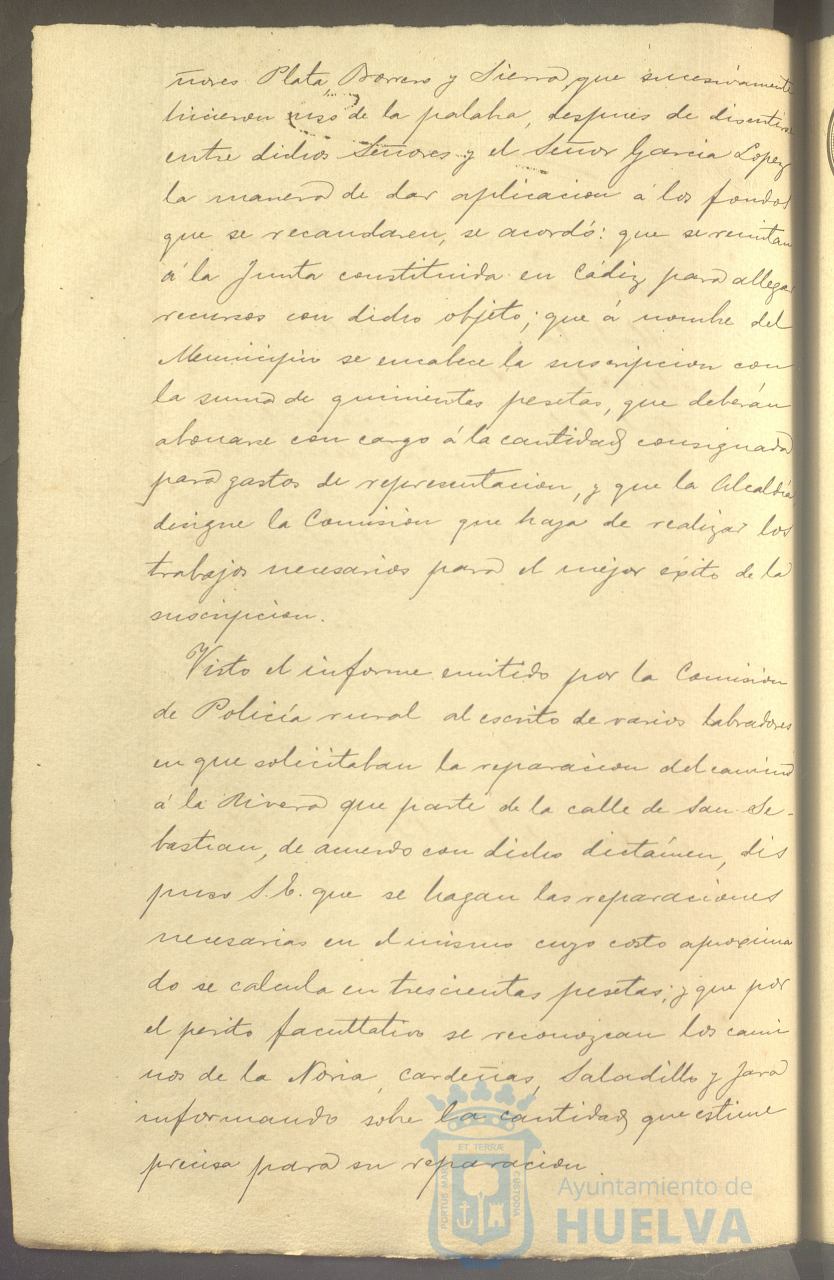 ñores Plata, Borrero y Sierra, que sucesivamente
hicieron uso de la palabra, despues de discutirse
entre dichos Señores y el Señor Garcia Lopez
la manera de dar aplicacion á los fondos
que se recaudasen, se acordó: que se remitan
á la Junta constituida en Cádiz para allegar
recursos con dicho objeto; que á nombre del
Municipio se encabece la suscripcion con
la suma de quinientas pesetas, que deberán
abonarse con cargo á la cantidad consignada
para gastos de representacion, y que la Alcaldía
designe la Comision que haya de realizar los
trabajos necesarios para el mejor éxito de la
suscripcion.
Visto el informe emitido por la Comision
de Policía rural al escrito de varios labradores
en que solicitaban la reparacion del camino
á la Rivera que parte de la calle de San Se-
bastian, de acuerdo con dicho dictámen, dis
puso S.E. que se hagan las reparaciones
necesarias en el mismo cuyo costo aproxima
do se calcula en trescientas pesetas; y que por
el perito facultativo se reconozcan los cami
nos de la Noria, Cardeñas, Saladillo y Jara
informando sobre la cantidad que estime
precisa para su reparacion
PORTUS MARIS ET TERRÆ CUSTODIA
Ayuntamiento de
HUELVA